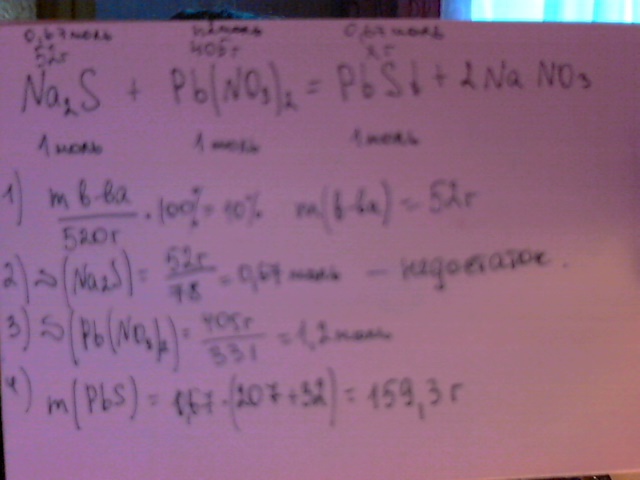 0,67 моль 1,2 моль 0,67 моль
52г 405г x г
Na₂S + Pb(NO₃)₂ = PbS↓ + 2NaNO₃
1 моль 1 моль 1 моль
1) m в-ва / 520г · 100% = 10% m(в-ва) = 52г
2) ν(Na₂S) = 52г / 78 = 0,67 моль — недостаток.
3) ν(Pb(NO₃)₂) = 405г / 331 = 1,2 моль
4) m(PbS) = 0,67 · (207+32) = 159,3 г